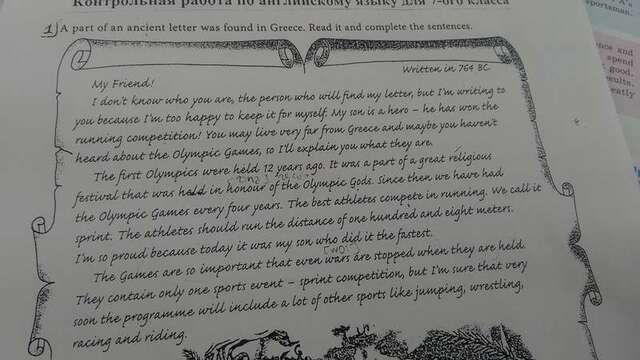 Контрольная работа по английскому языку для 7-ого класса
1) A part of an ancient letter was found in Greece. Read it and complete the sentences.
Written in 764 BC.
My Friend!
I don't know who you are, the person who will find my letter, but I'm writing to
you because I'm too happy to keep it for myself. My son is a hero – he has won the
running competition! You may live very far from Greece and maybe you haven't
heard about the Olympic Games, so I'll explain you what they are.
The first Olympics were held 12 years ago. It was a part of a great religious
festival that was held in honour of the Olympic Gods. Since then we have had
the Olympic Games every four years. The best athletes compete in running. We call it
sprint. The athletes should run the distance of one hundred and eight meters.
I'm so proud because today it was my son who did it the fastest.
The Games are so important that even wars are stopped when they are held.
They contain only one sports event – sprint competition, but I'm sure that very
soon the programme will include a lot of other sports like jumping, wrestling,
racing and riding.
X's
sportsman.
nce and
spend
good,
esults.
eatly